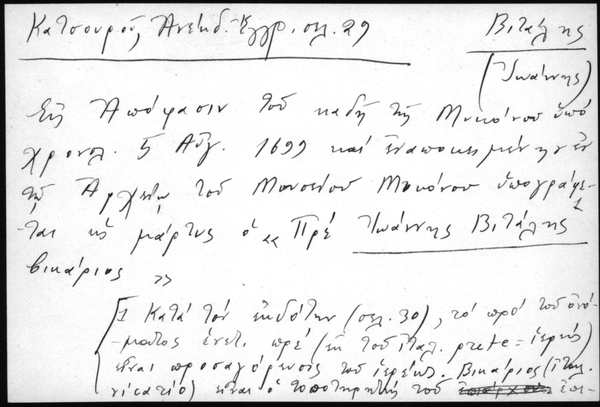 Κατσουροῦ, Ἀνέκδ. Ἔγγρ. σελ. 29
Βιτάλης
(Ἰωάννης)
Εἰς Ἀπόφασιν τοῦ καδῆ τῆς Μυκόνου ὑπό
χρονολ. 5 Αὐγ. 1699 καί ἐναποκειμένην ἐν
τῷ Ἀρχείῳ τοῦ Μουσείου Μυκόνου ὑπογράφε-
ται ὡς μάρτυς ὁ «Πρέ Ἰωάννης Βιτάλης 1
βικάριος»
[1 Κατά τόν ἐκδότην (σελ. 30), τό πρό τοῦ ὀνό-
ματος ἑνετ. πρέ (ἐκ τοῦ ἰταλ. prete = ἱερεύς)
εἶναι προσαγόρευσις τοῦ ἱερέως. Βικάριος (ἰταλ.
vicario) εἶναι ὁ τοποτηρητής τοῦ ἐπι-